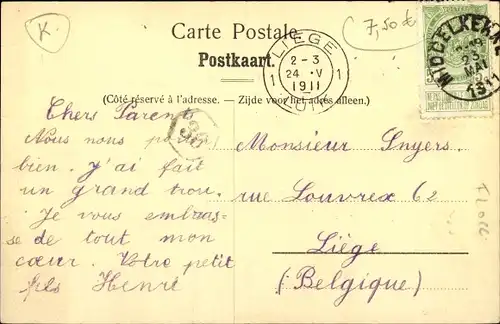 K.
7,50 €
Carte Postale
Postkaart.
LIÈGE
2-3
1 24 V 1
1911
MIDDELKERKE
23
MAI
1911
(Côté réservé à l'adresse. — Zijde voor het adres alleen.)
Chers Parents
Nous nous
bien. y'ai fait
un grand trou.
Je vous embras=
se de tout mon
cœur. Votre petit
fils Henri
Monsieur Snyers.
rue Louvrex 62
Liège
(Belgique)